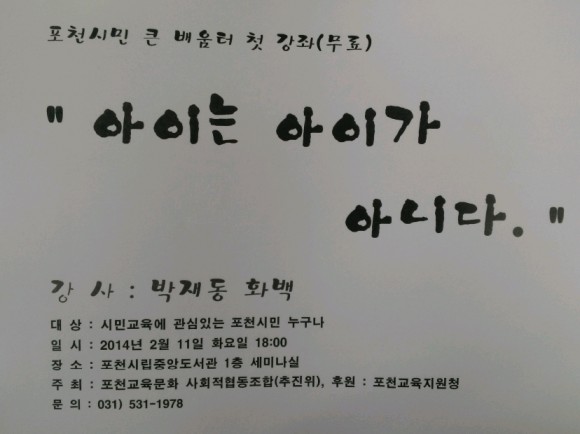 포천시민 큰 배움터 첫 강좌(무료)
" 아이는 아이가
아니다. "
강 사 : 박재동 화백
대 상 : 시민교육에 관심있는 포천시민 누구나
일 시 : 2014년 2월 11일 화요일 18:00
장 소 : 포천시립중앙도서관 1층 세미나실
주 최 : 포천교육문화 사회적협동조합(추진위), 후원 : 포천교육지원청
문 의 : 031) 531-1978